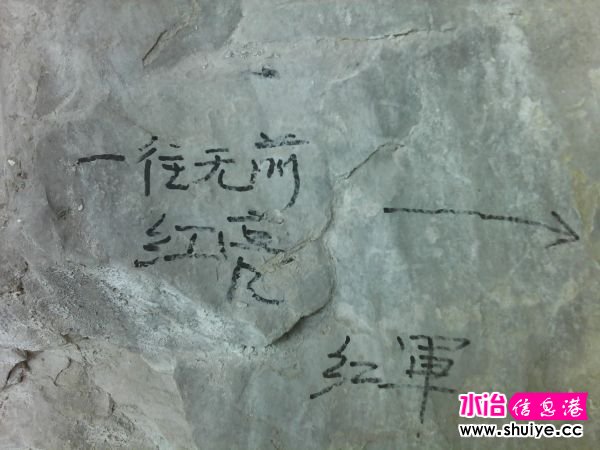 一往无前
红亮
红軍
水冶信息港
www.shuiye.cc